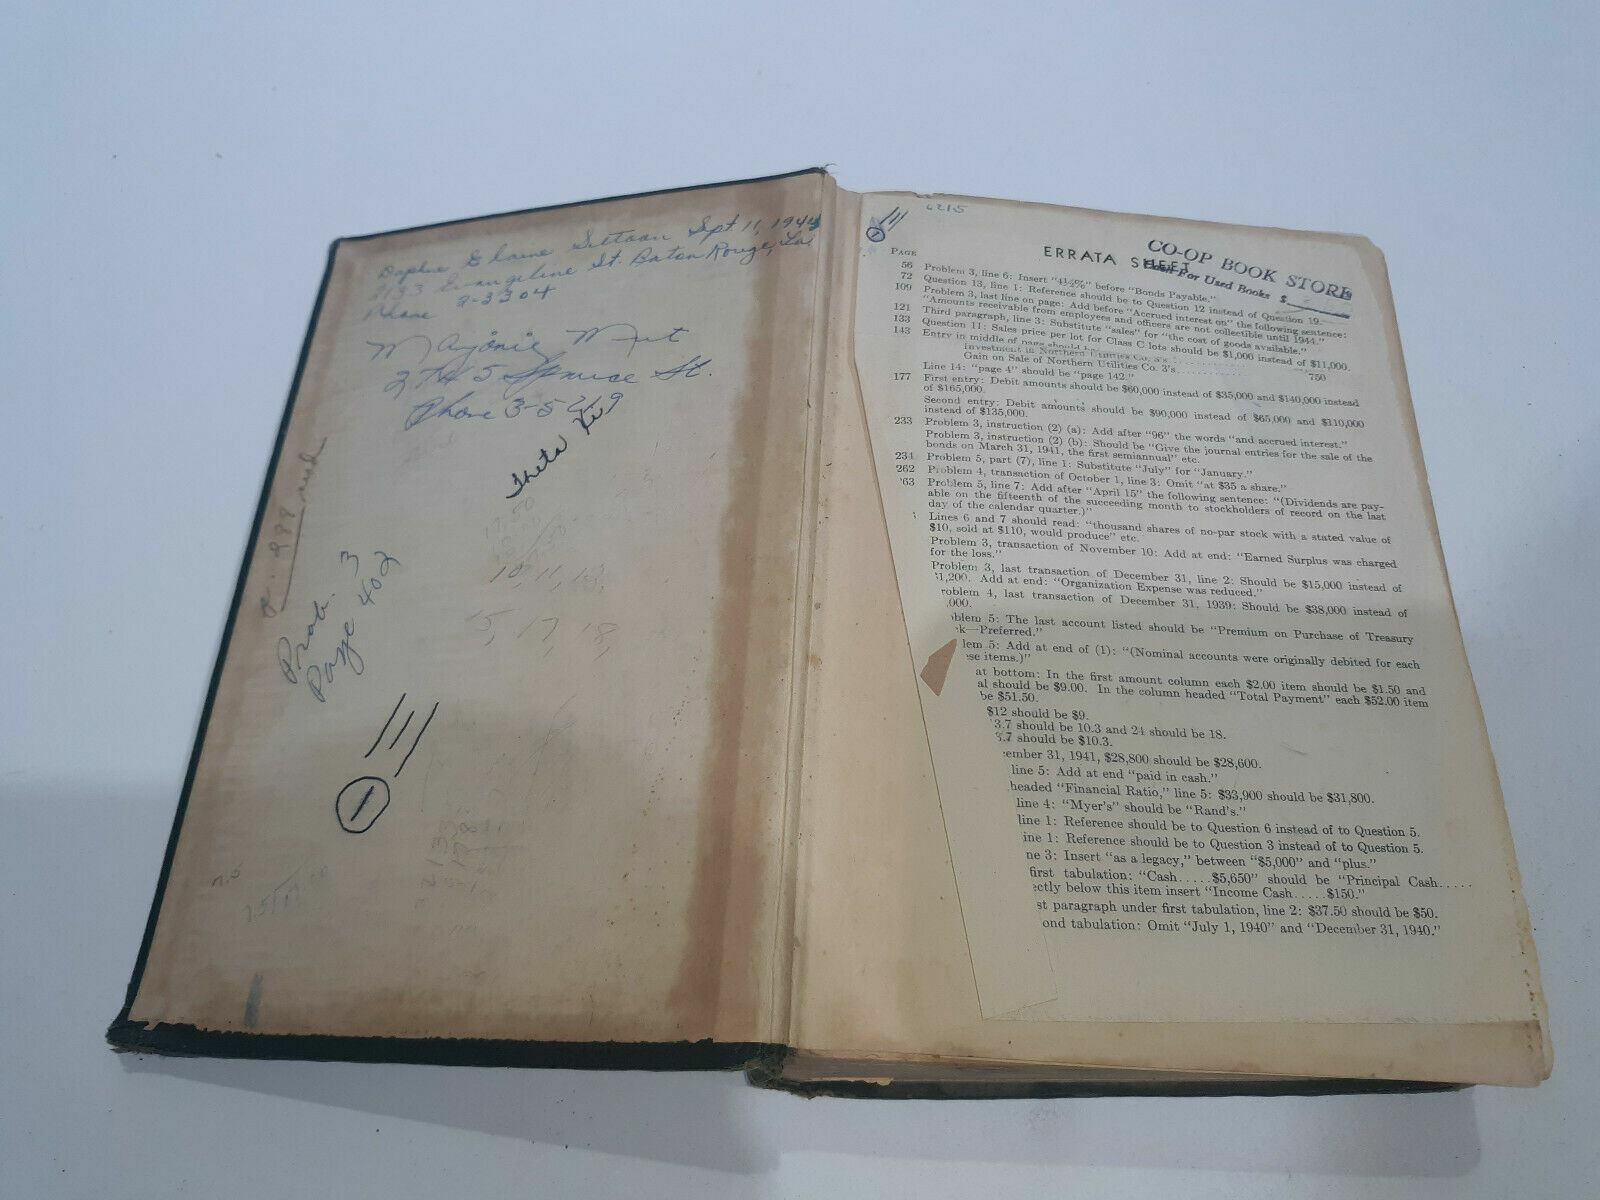 Daphne Elaine Sept. 11, 1944
Evangeline St. Baton Rouge, La.
Phone 9-3304
Marjorie
2745 Spruce St.
Phone 3-5219
Theta
Prob. 3
Page 402
10, 11, 13,
5, 17, 18,
1
6215
1
CO-OP BOOK STORE
Cash For Used Books $
ERRATA SHEET
PAGE
56 Problem 3, line 6: Insert "4½%" before "Bonds Payable."
72 Question 13, line 1: Reference should be to Question 12 instead of Question 19.
109 Problem 3, last line on page: Add before "Accrued interest on" the following sentence:
"Amounts receivable from employees and officers are not collectible until 1944."
121 Third paragraph, line 3: Substitute "sales" for "the cost of goods available."
133 Question 11: Sales price per lot for Class C lots should be $1,000 instead of $11,000.
143 Entry in middle of page should
Investment in Northern Utilities Co. 3's
Gain on Sale of Northern Utilities Co. 3's 750
Line 14: "page 4" should be "page 142."
177 First entry: Debit amounts should be $60,000 instead of $35,000 and $140,000 instead
of $165,000.
Second entry: Debit amounts should be $90,000 instead of $65,000 and $110,000
instead of $135,000.
233 Problem 3, instruction (2) (a): Add after "96" the words "and accrued interest."
Problem 3, instruction (2) (b): Should be "Give the journal entries for the sale of the
bonds on March 31, 1941, the first semiannual" etc.
234 Problem 5, part (7), line 1: Substitute "July" for "January."
262 Problem 4, transaction of October 1, line 3: Omit "at $35 a share."
63 Problem 5, line 7: Add after "April 15" the following sentence: "(Dividends are pay-
able on the fifteenth of the succeeding month to stockholders of record on the last
day of the calendar quarter.)"
Lines 6 and 7 should read: "thousand shares of no-par stock with a stated value of
$10, sold at $110, would produce" etc.
Problem 3, transaction of November 10: Add at end: "Earned Surplus was charged
for the loss."
Problem 3, last transaction of December 31, line 2: Should be $15,000 instead of
1,200. Add at end: "Organization Expense was reduced."
roblem 4, last transaction of December 31, 1939: Should be $38,000 instead of
,000.
blem 5: The last account listed should be "Premium on Purchase of Treasury
k—Preferred."
lem 5: Add at end of (1): "(Nominal accounts were originally debited for each
ese items.)"
at bottom: In the first amount column each $2.00 item should be $1.50 and
al should be $9.00. In the column headed "Total Payment" each $52.00 item
be $51.50.
$12 should be $9.
3.7 should be 10.3 and 24 should be 18.
3.7 should be $10.3.
cember 31, 1941, $28,800 should be $28,600.
line 5: Add at end "paid in cash."
headed "Financial Ratio," line 5: $33,900 should be $31,800.
line 4: "Myer's" should be "Rand's."
line 1: Reference should be to Question 6 instead of to Question 5.
ine 1: Reference should be to Question 3 instead of to Question 5.
ne 3: Insert "as a legacy," between "$5,000" and "plus."
first tabulation: "Cash.....$5,650" should be "Principal Cash.....
ectly below this item insert "Income Cash.....$150."
st paragraph under first tabulation, line 2: $37.50 should be $50.
ond tabulation: Omit "July 1, 1940" and "December 31, 1940."